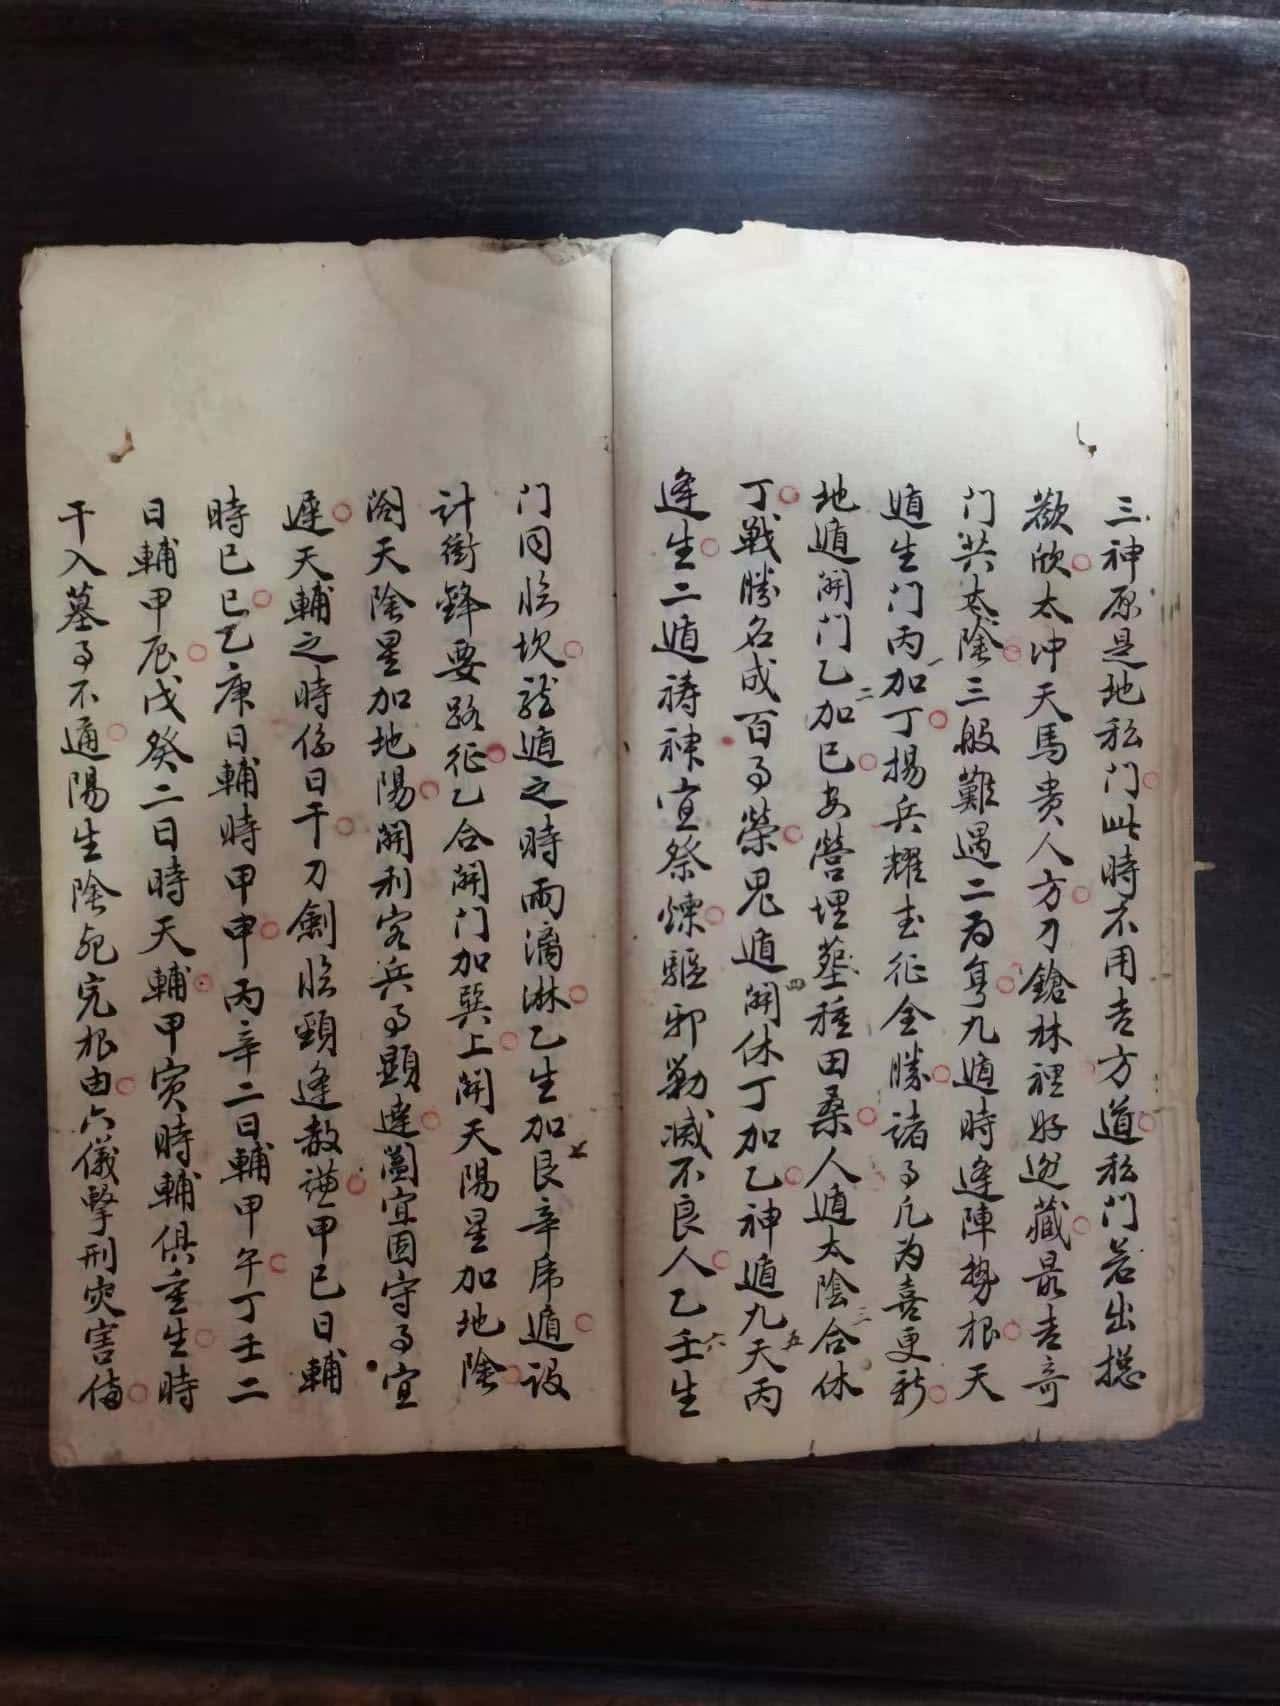 三神原是地私門此時不用吉方道私門若出揔
歡欣太冲天馬貴人方刀鎗林裡好迯藏最吉奇
門共太陰三般難遇二為旱九遁時逢陣勢根天
遁生門丙加丁揚兵耀武征全勝諸事凡為喜更新
地遁開門乙加巳安營埋墓種田桑人遁太陰合休
丁戰勝名成百事榮鬼遁開休丁加乙神遁九天丙
逢生二遁祷神宜祭煉驅邪剿滅不良人乙壬生
門同临坎龍遁之時雨滴淋乙生加艮辛虎遁設
計衝鋒要路征乙合開門加巽上開天陽星加地陰
闔天陰星加地陽開利客兵事顯達闔宜固守事宜
遲天輔之時係日干刀劍临頸逢赦謹甲巳日輔
時巳巳乙庚日輔時甲申丙辛二日輔甲午丁壬二
日輔甲辰戊癸二日時天輔甲寅時輔俱重生時
干入墓事不通陽生陰死究根由六儀擊刑灾害偹